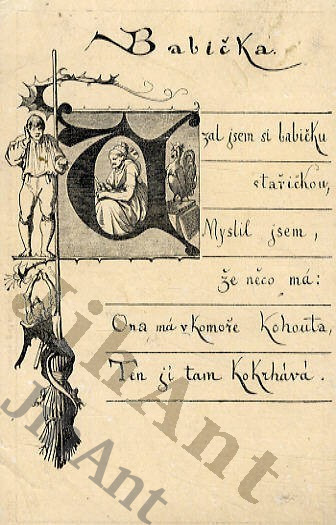 Babička.
Uzal jsem si babičku
stařičkou,
Myslil jsem,
že něco má:
Ona má v komoře Kohouta,
Ten jí tam Kokrhává.
JikAnt
JikAnt